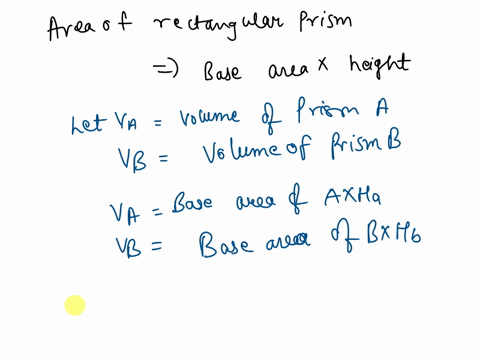 Area of rectangular Prism
=> Base area × height
Let VA = Volume of Prism A
VB = Volume of Prism B
VA = Base area of A×Ha
VB = Base area of B×Hb